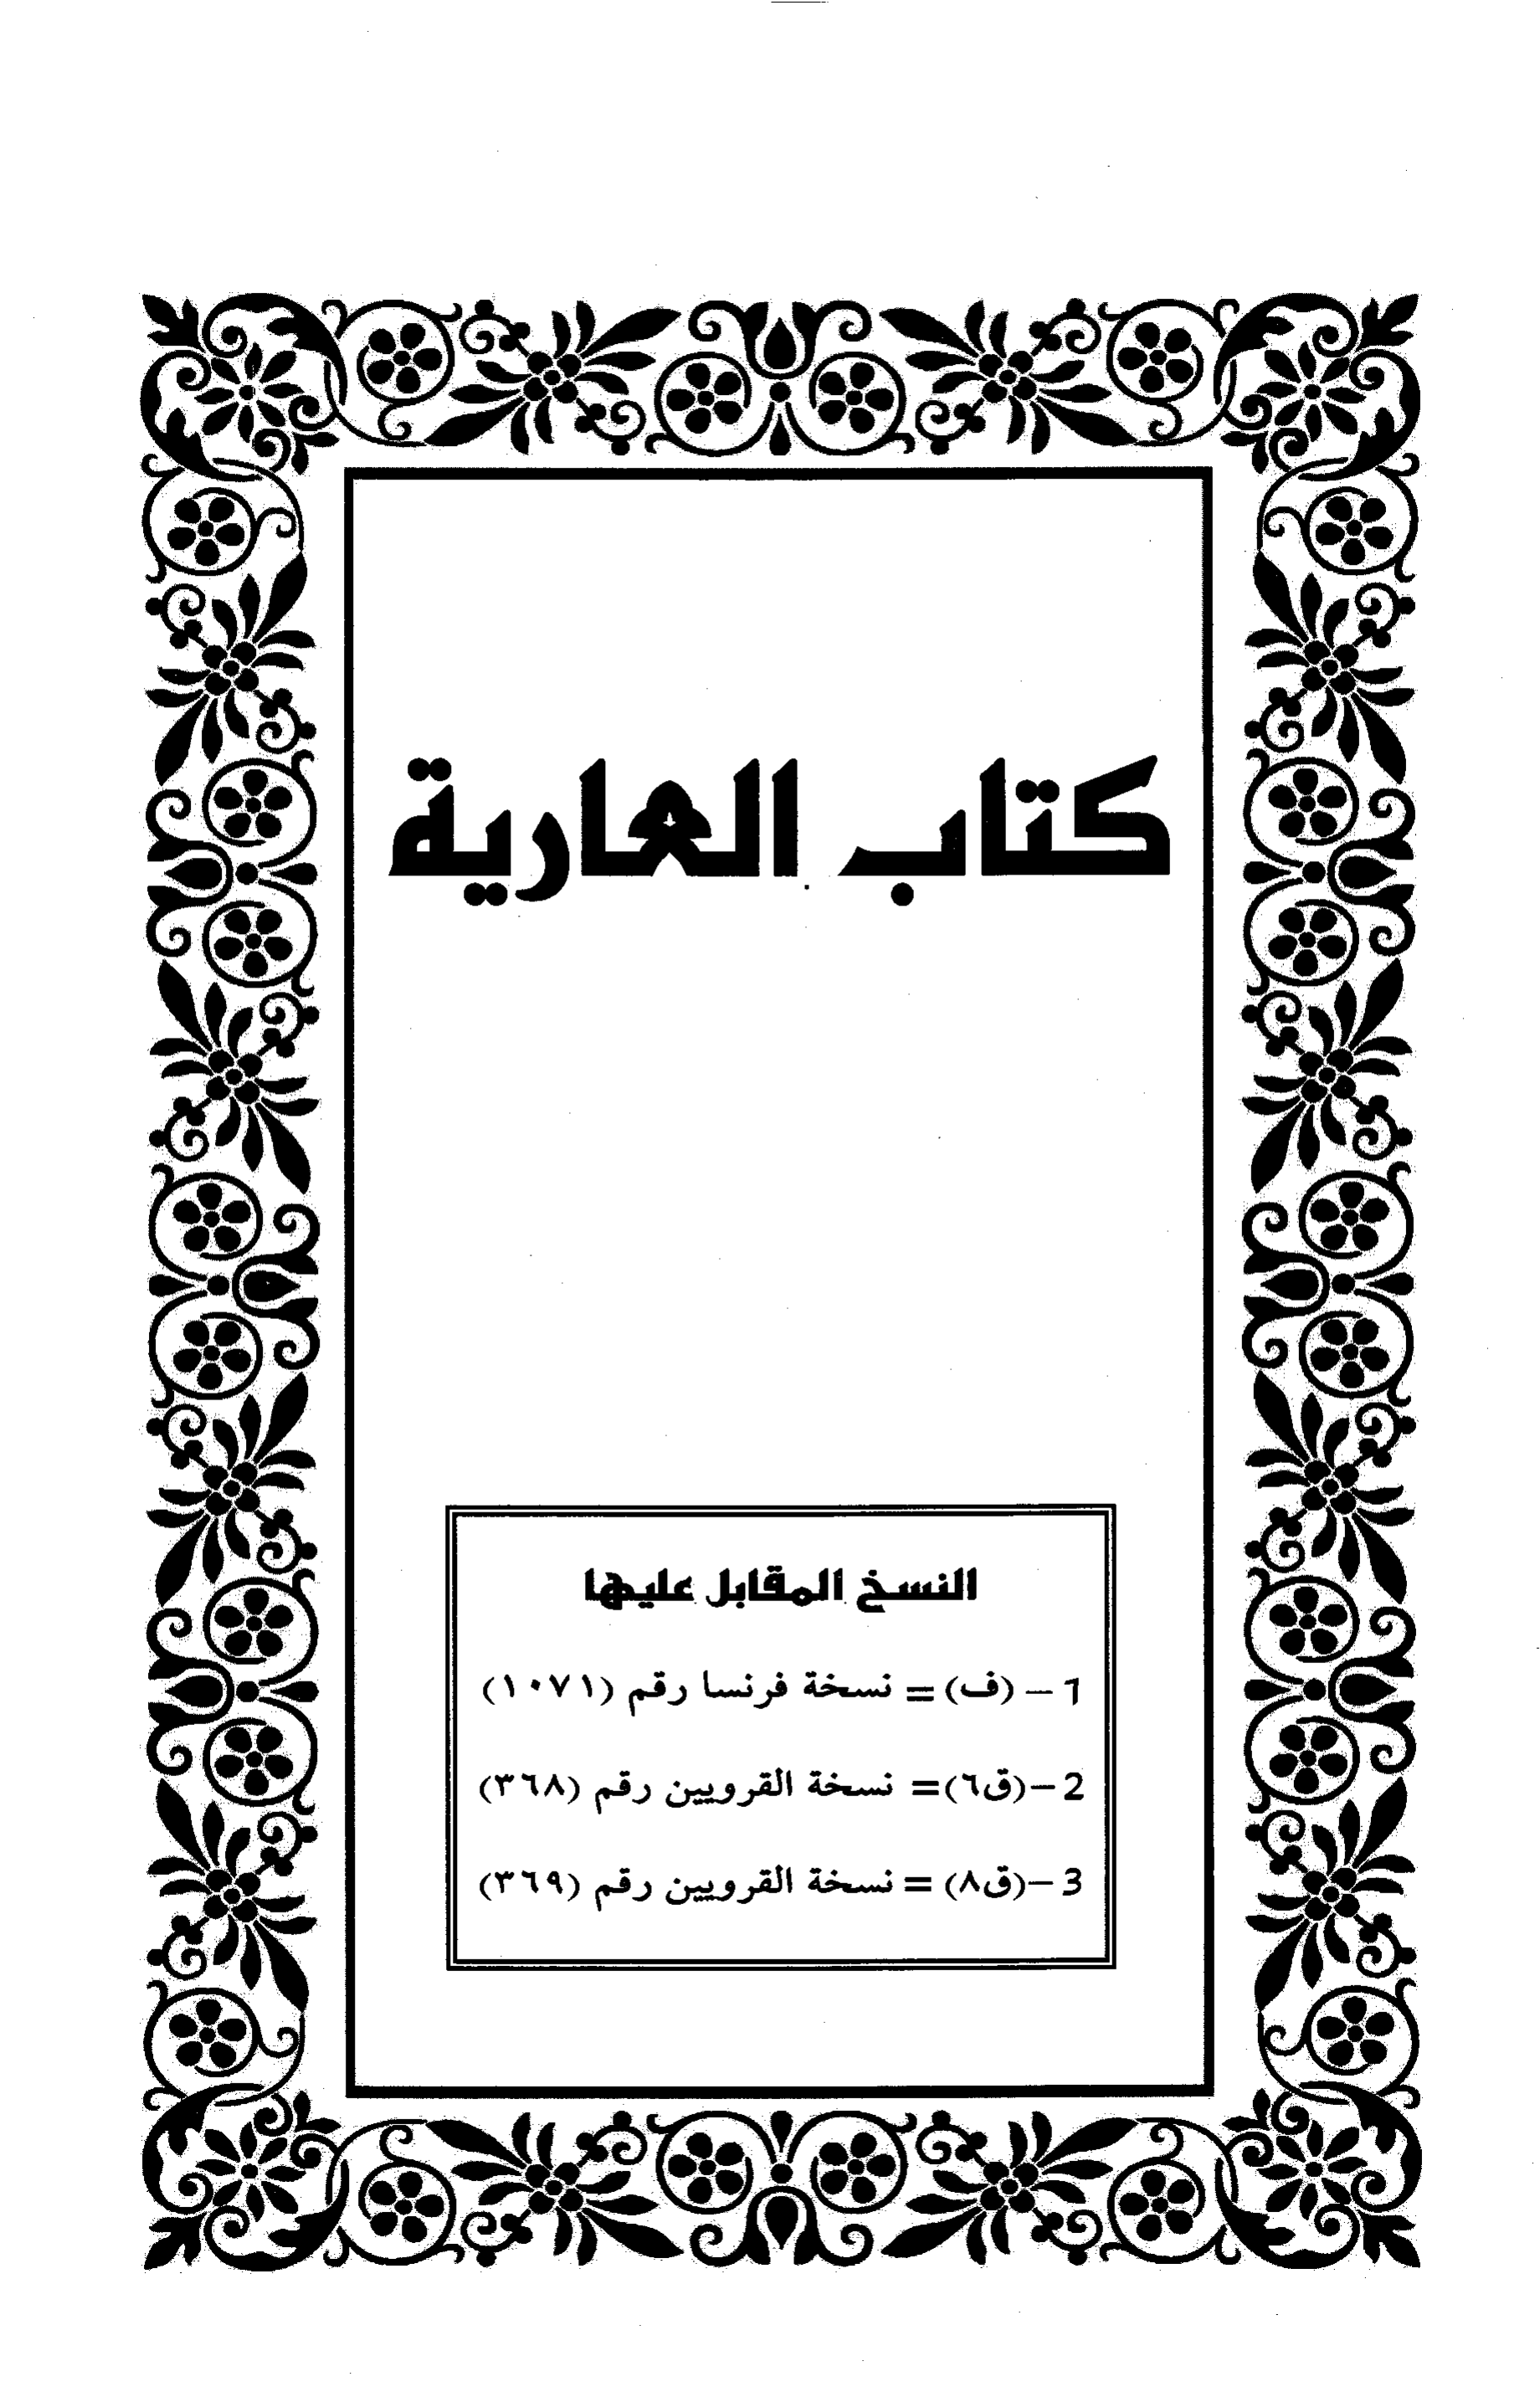 كتاب العارية
النسخ المقابل عليها
1 - (ف) = نسخة فرنسا رقم (١٠٧١)
2 -(ق٦)= نسخة القرويين رقم (٣٦٨)
3 -(ق٨) = نسخة القرويين رقم (٣٦٩)